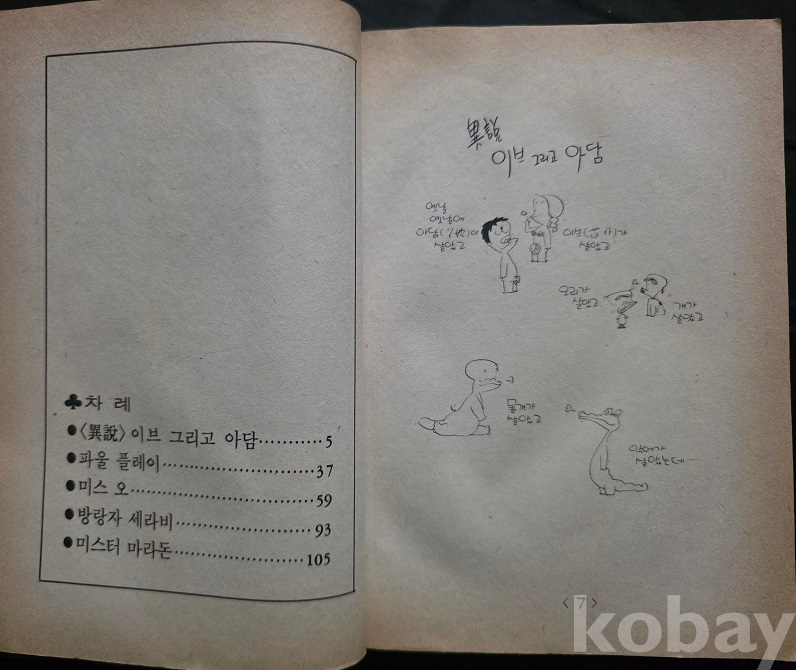 ♣차 례
●〈異說〉이브 그리고 아담…………5
●파울 플레이……………………37
●미스 오…………………………59
●방랑자 세라비…………………93
●미스터 마라돈…………………105
異說
이브 그리고 아담
옛날
옛날에
아담( )이
살았고
이브( )가
살았고
오리가
살았고
개가
살았고
물개가
살았고
악어가
살았는데…
〈7〉
kobay